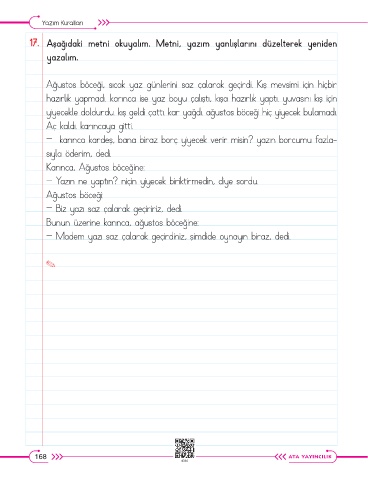 Yazım Kuralları
17. Aşağıdaki metni okuyalım. Metni, yazım yanlışlarını düzelterek yeniden
yazalım.
Ağustos böceği, sıcak yaz günlerini saz çalarak geçirdi. Kış mevsimi için hiçbir
hazırlık yapmadı. karınca ise yaz boyu çalıştı, kışa hazırlık yaptı. yuvasını kış için
yiyecekle doldurdu. kış geldi çattı. kar yağdı. ağustos böceği hiç yiyecek bulamadı.
Aç kaldı. karıncaya gitti.
– karınca kardeş, bana biraz borç yiyecek verir misin? yazın borcumu fazla-
sıyla öderim, dedi.
Karınca, Ağustos böceğine:
– Yazın ne yaptın? niçin yiyecek biriktirmedin, diye sordu.
Ağustos böceği
– Biz yazı saz çalarak geçiririz, dedi.
Bunun üzerine karınca, ağustos böceğine:
– Madem yazı saz çalarak geçirdiniz, şimdide oynayın biraz, dedi.
168
ATA YAYINCILIK